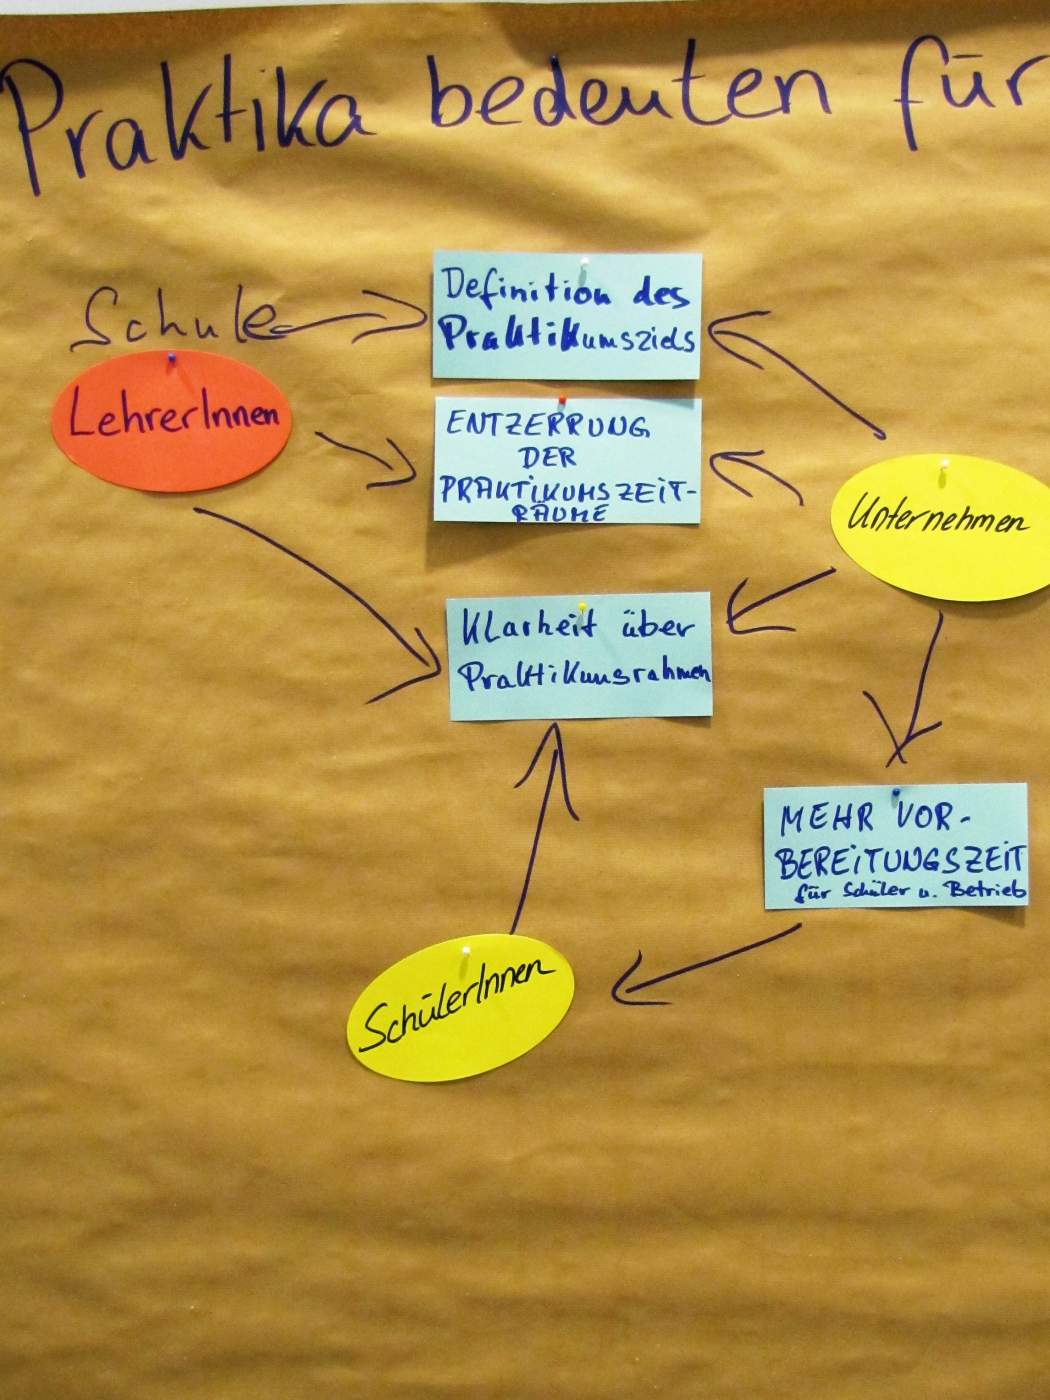 Praktika bedeuten für
Schule
LehrerInnen
Definition des
Praktikumsziels
ENTZERRUNG
DER
PRAKTIKUMSZEIT-
RÄUME
Unternehmen
Klarheit über
Praktikumsrahmen
MEHR VOR-
BEREITUNGSZEIT
für Schüler u. Betrieb
SchülerInnen